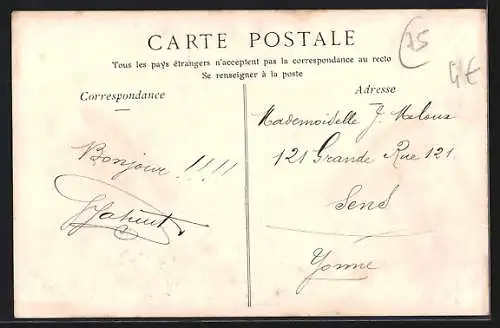 CARTE POSTALE
Tous les pays étrangers n'acceptent pas la correspondance au recto
Se renseigner à la poste
Correspondance
Adresse
Bonjour !!!!
Mademoiselle J.
121 Grande Rue 121
Sens
Yonne
75
4€